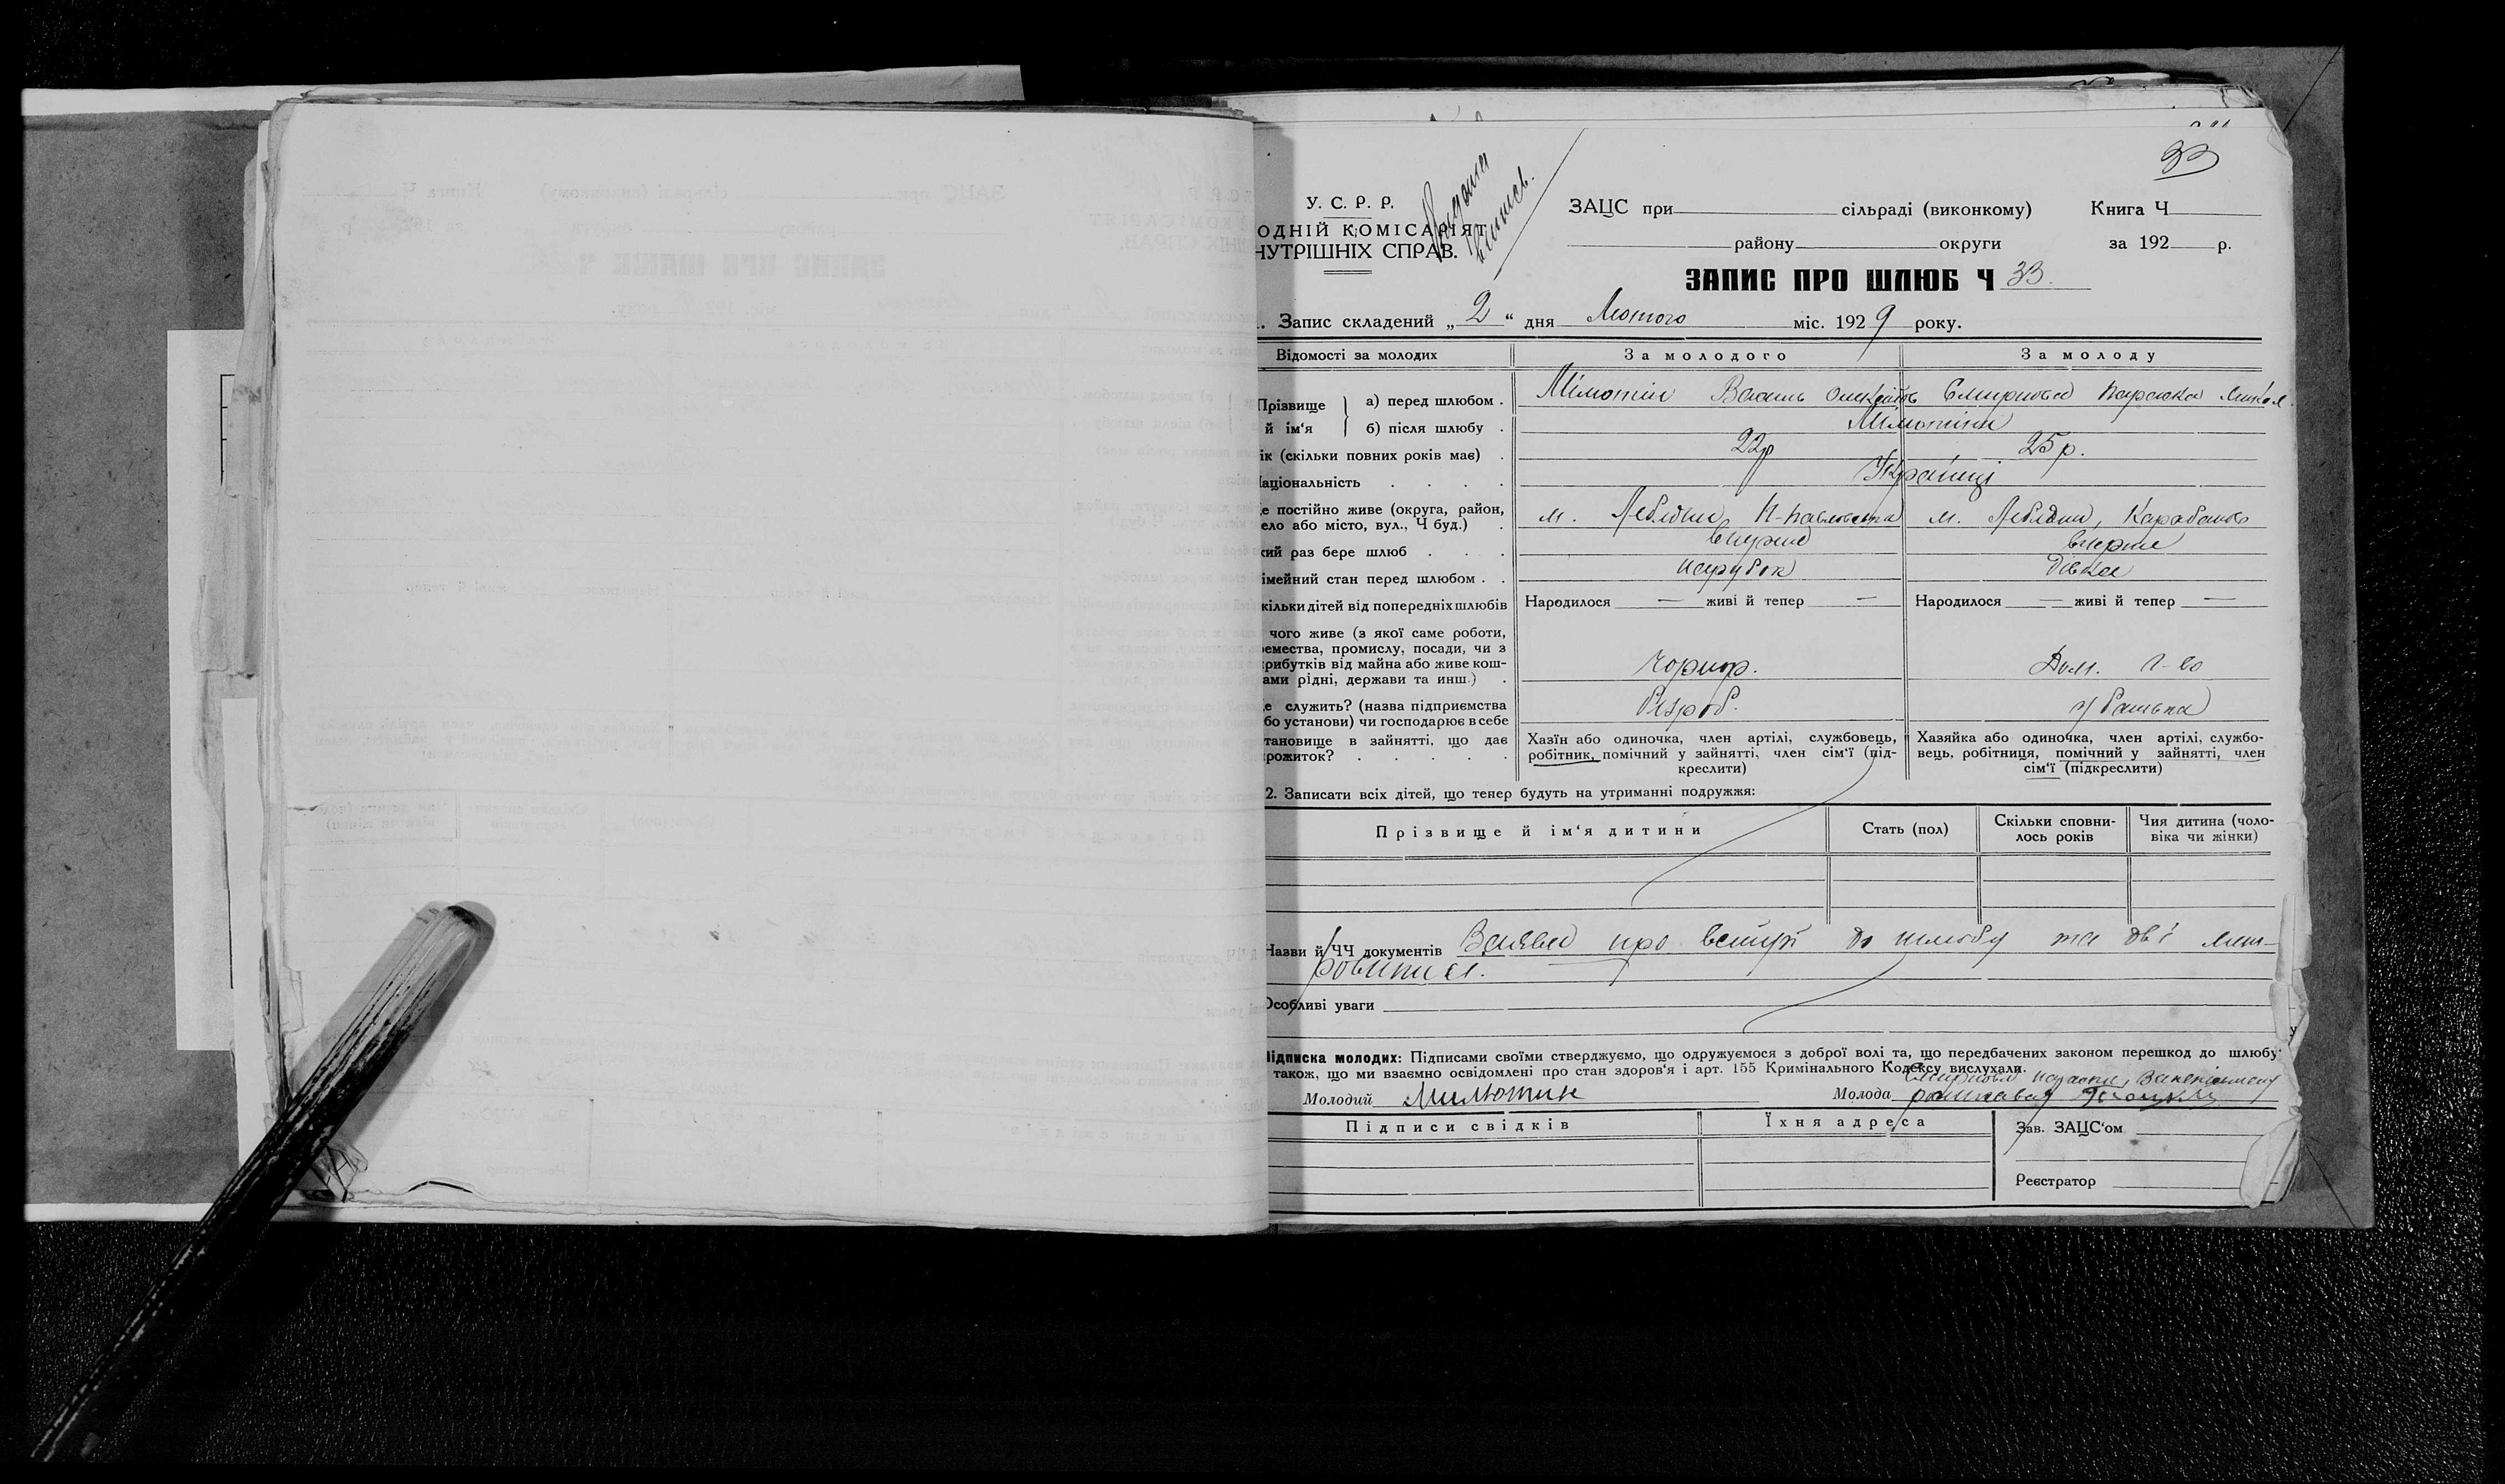 33
У. С. Р. Р.
ОДНІЙ КОМІСАРІЯТ
НУТРІШНІХ СПРАВ.
Видана
виписъ.
ЗАЦС при сільраді (виконкому) Книга Ч
району округи за 192 р.
ЗАПИС ПРО ШЛЮБ Ч 33.
. Запис складений „2“ дня Лютого міс. 1929 року.
Відомості за молодих За молодого За молоду
Прізвище й ім'я а) перед шлюбом . Мілютін Василь Смирнова Параска Микол.
б) після шлюбу . Мілютіни
ік (скільки повних років має) . 22р 25р.
аціональність . . . . Українці
е постійно живе (округа, район,
ело або місто, вул., Ч буд.) . м. Лебедин, м. Лебедин,
кий раз бере шлюб . . . вперше вперше
імейний стан перед шлюбом . . парубок дівка
кільки дітей від попередніх шлюбів Народилося — живі й тепер — Народилося — живі й тепер —
чого живе (з якої саме роботи,
емества, промислу, посади, чи з
рибутків від майна або живе кош-
ами рідні, держави та инш.) . чорнор. Дом. г-во
е служить? (назва підприємства
бо установи) чи господарює в себе безроб. у батька
тановище в зайнятті, що дає
рожиток? . . . . .
Хазїн або одиночка, член артілі, службовець,
робітник, помічний у зайнятті, член сім'ї (під-
креслити)
Хазяйка або одиночка, член артілі, службо-
вець, робітниця, помічний у зайнятті, член
сім'ї (підкреслити)
2. Записати всіх дітей, що тепер будуть на утриманні подружжя:
Прізвище й ім'я дитини Стать (пол) Скільки сповни-
лось років Чия дитина (чоло-
віка чи жінки)
Назви й ЧЧ документів Заява про вступ до шлюбу та дві
Особливі уваги
Підписка молодих: Підписами своїми стверджуємо, що одружуємося з доброї волі та, що передбачених законом перешкод до шлюбу
також, що ми взаємно освідомлені про стан здоров'я і арт. 155 Кримінального Кодексу вислухали.
Молодий Милютин Молода
Підписи свідків Їхня адреса Зав. ЗАЦС'ом
Реєстратор